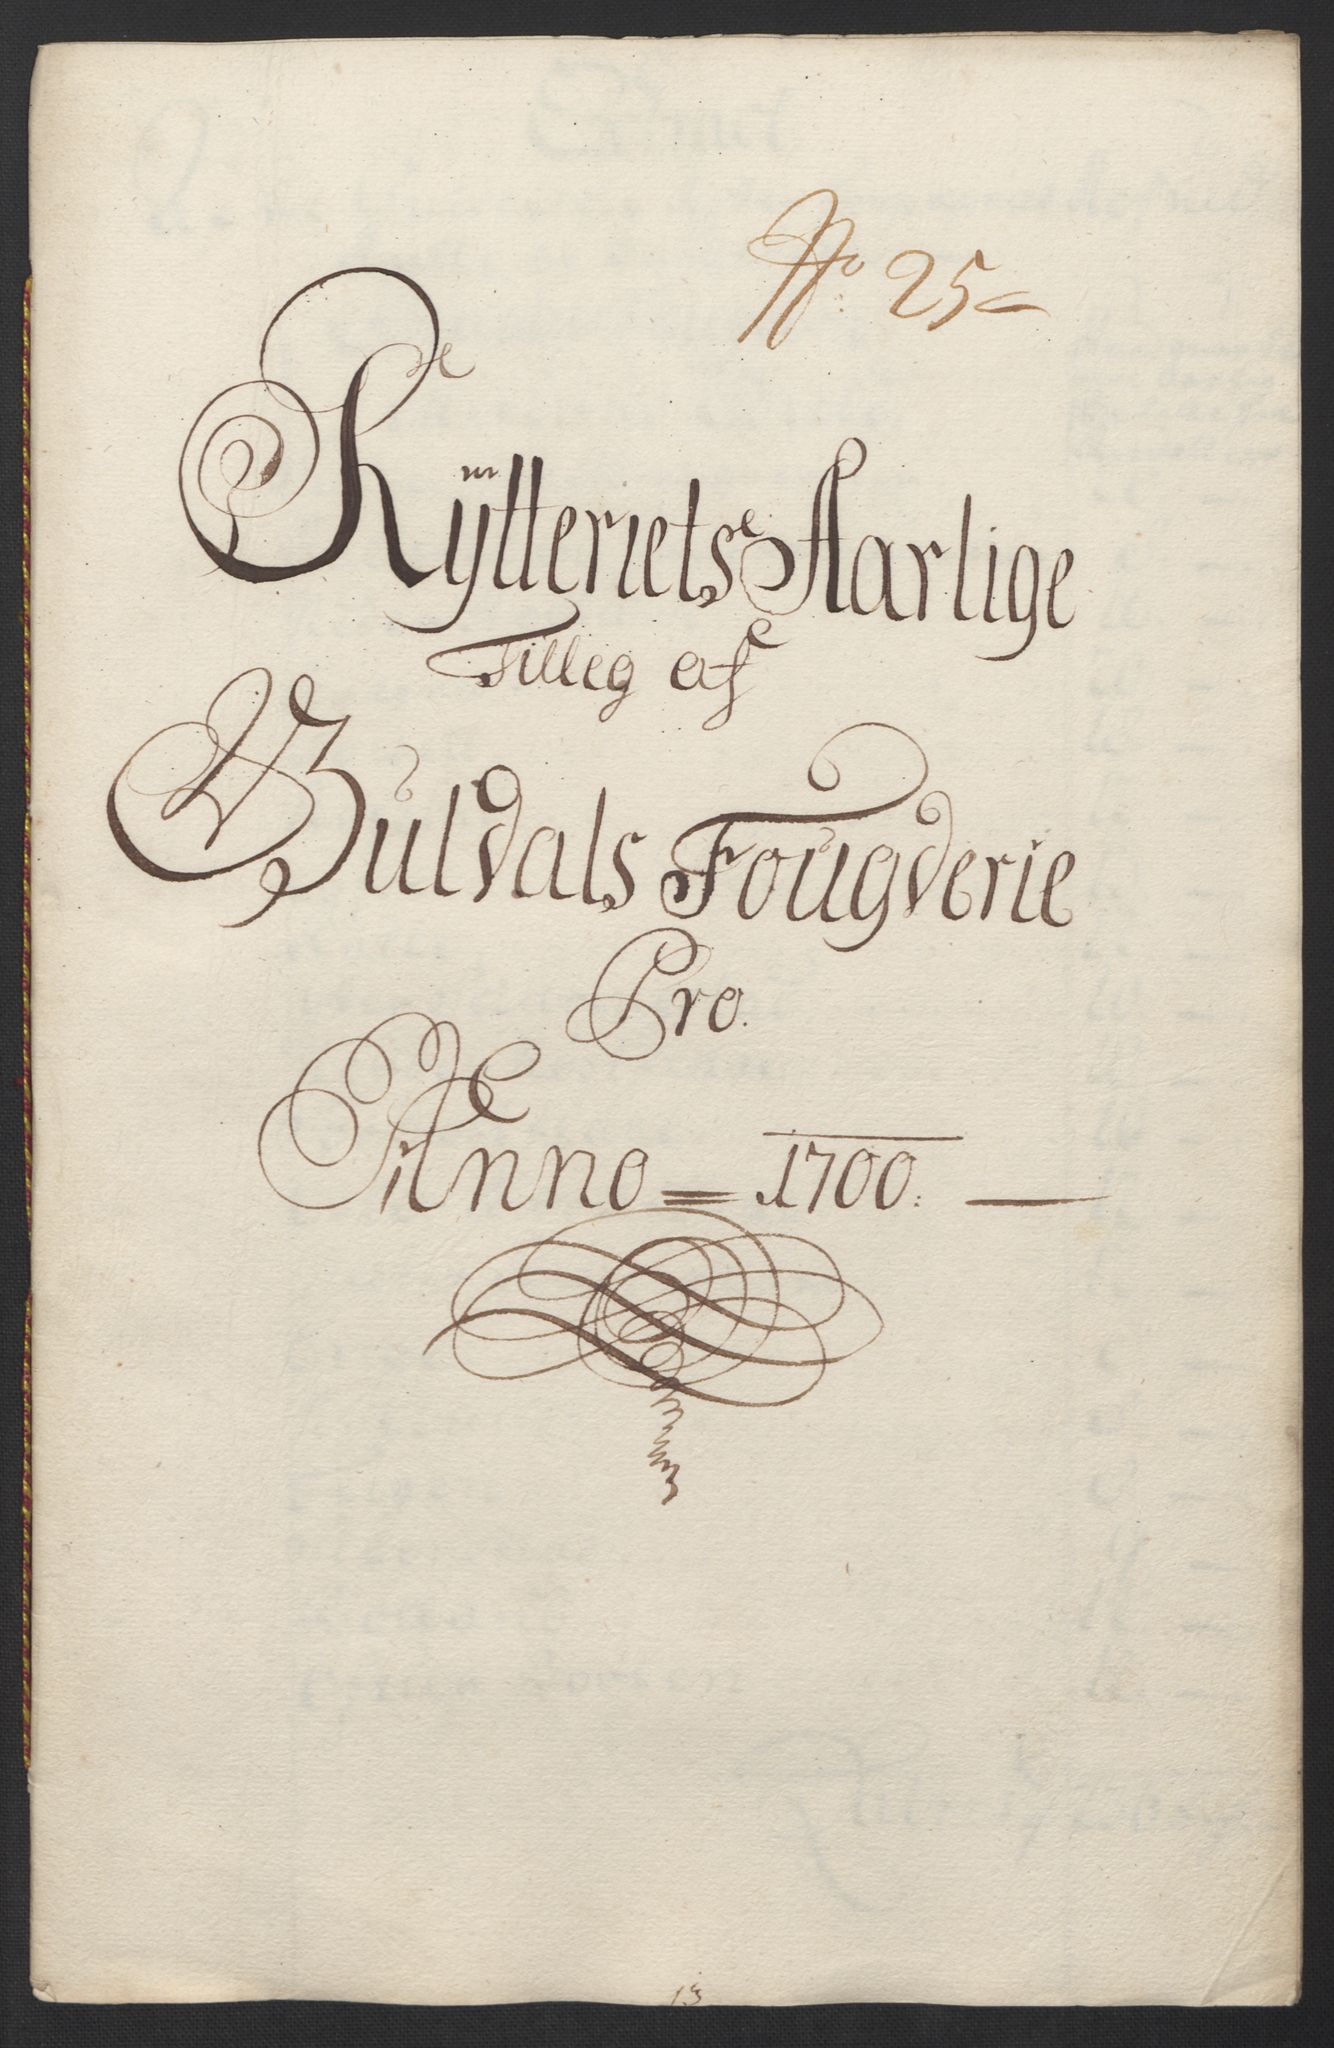 No 25
Rÿtteriets Aarlige
Tilleg af
Guldals Fougderie
Pro.
Anno = 1700. —
13